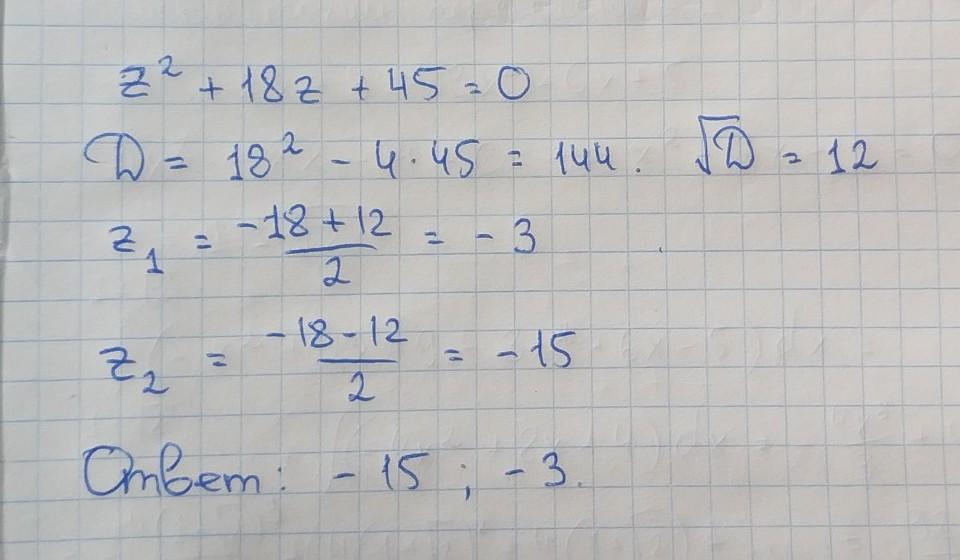 z² + 18z + 45 = 0
D = 18² - 4·45 = 144. √D = 12
z₁ = (-18 + 12)/2 = -3
z₂ = (-18 - 12)/2 = -15
Ответ: -15 ; -3.